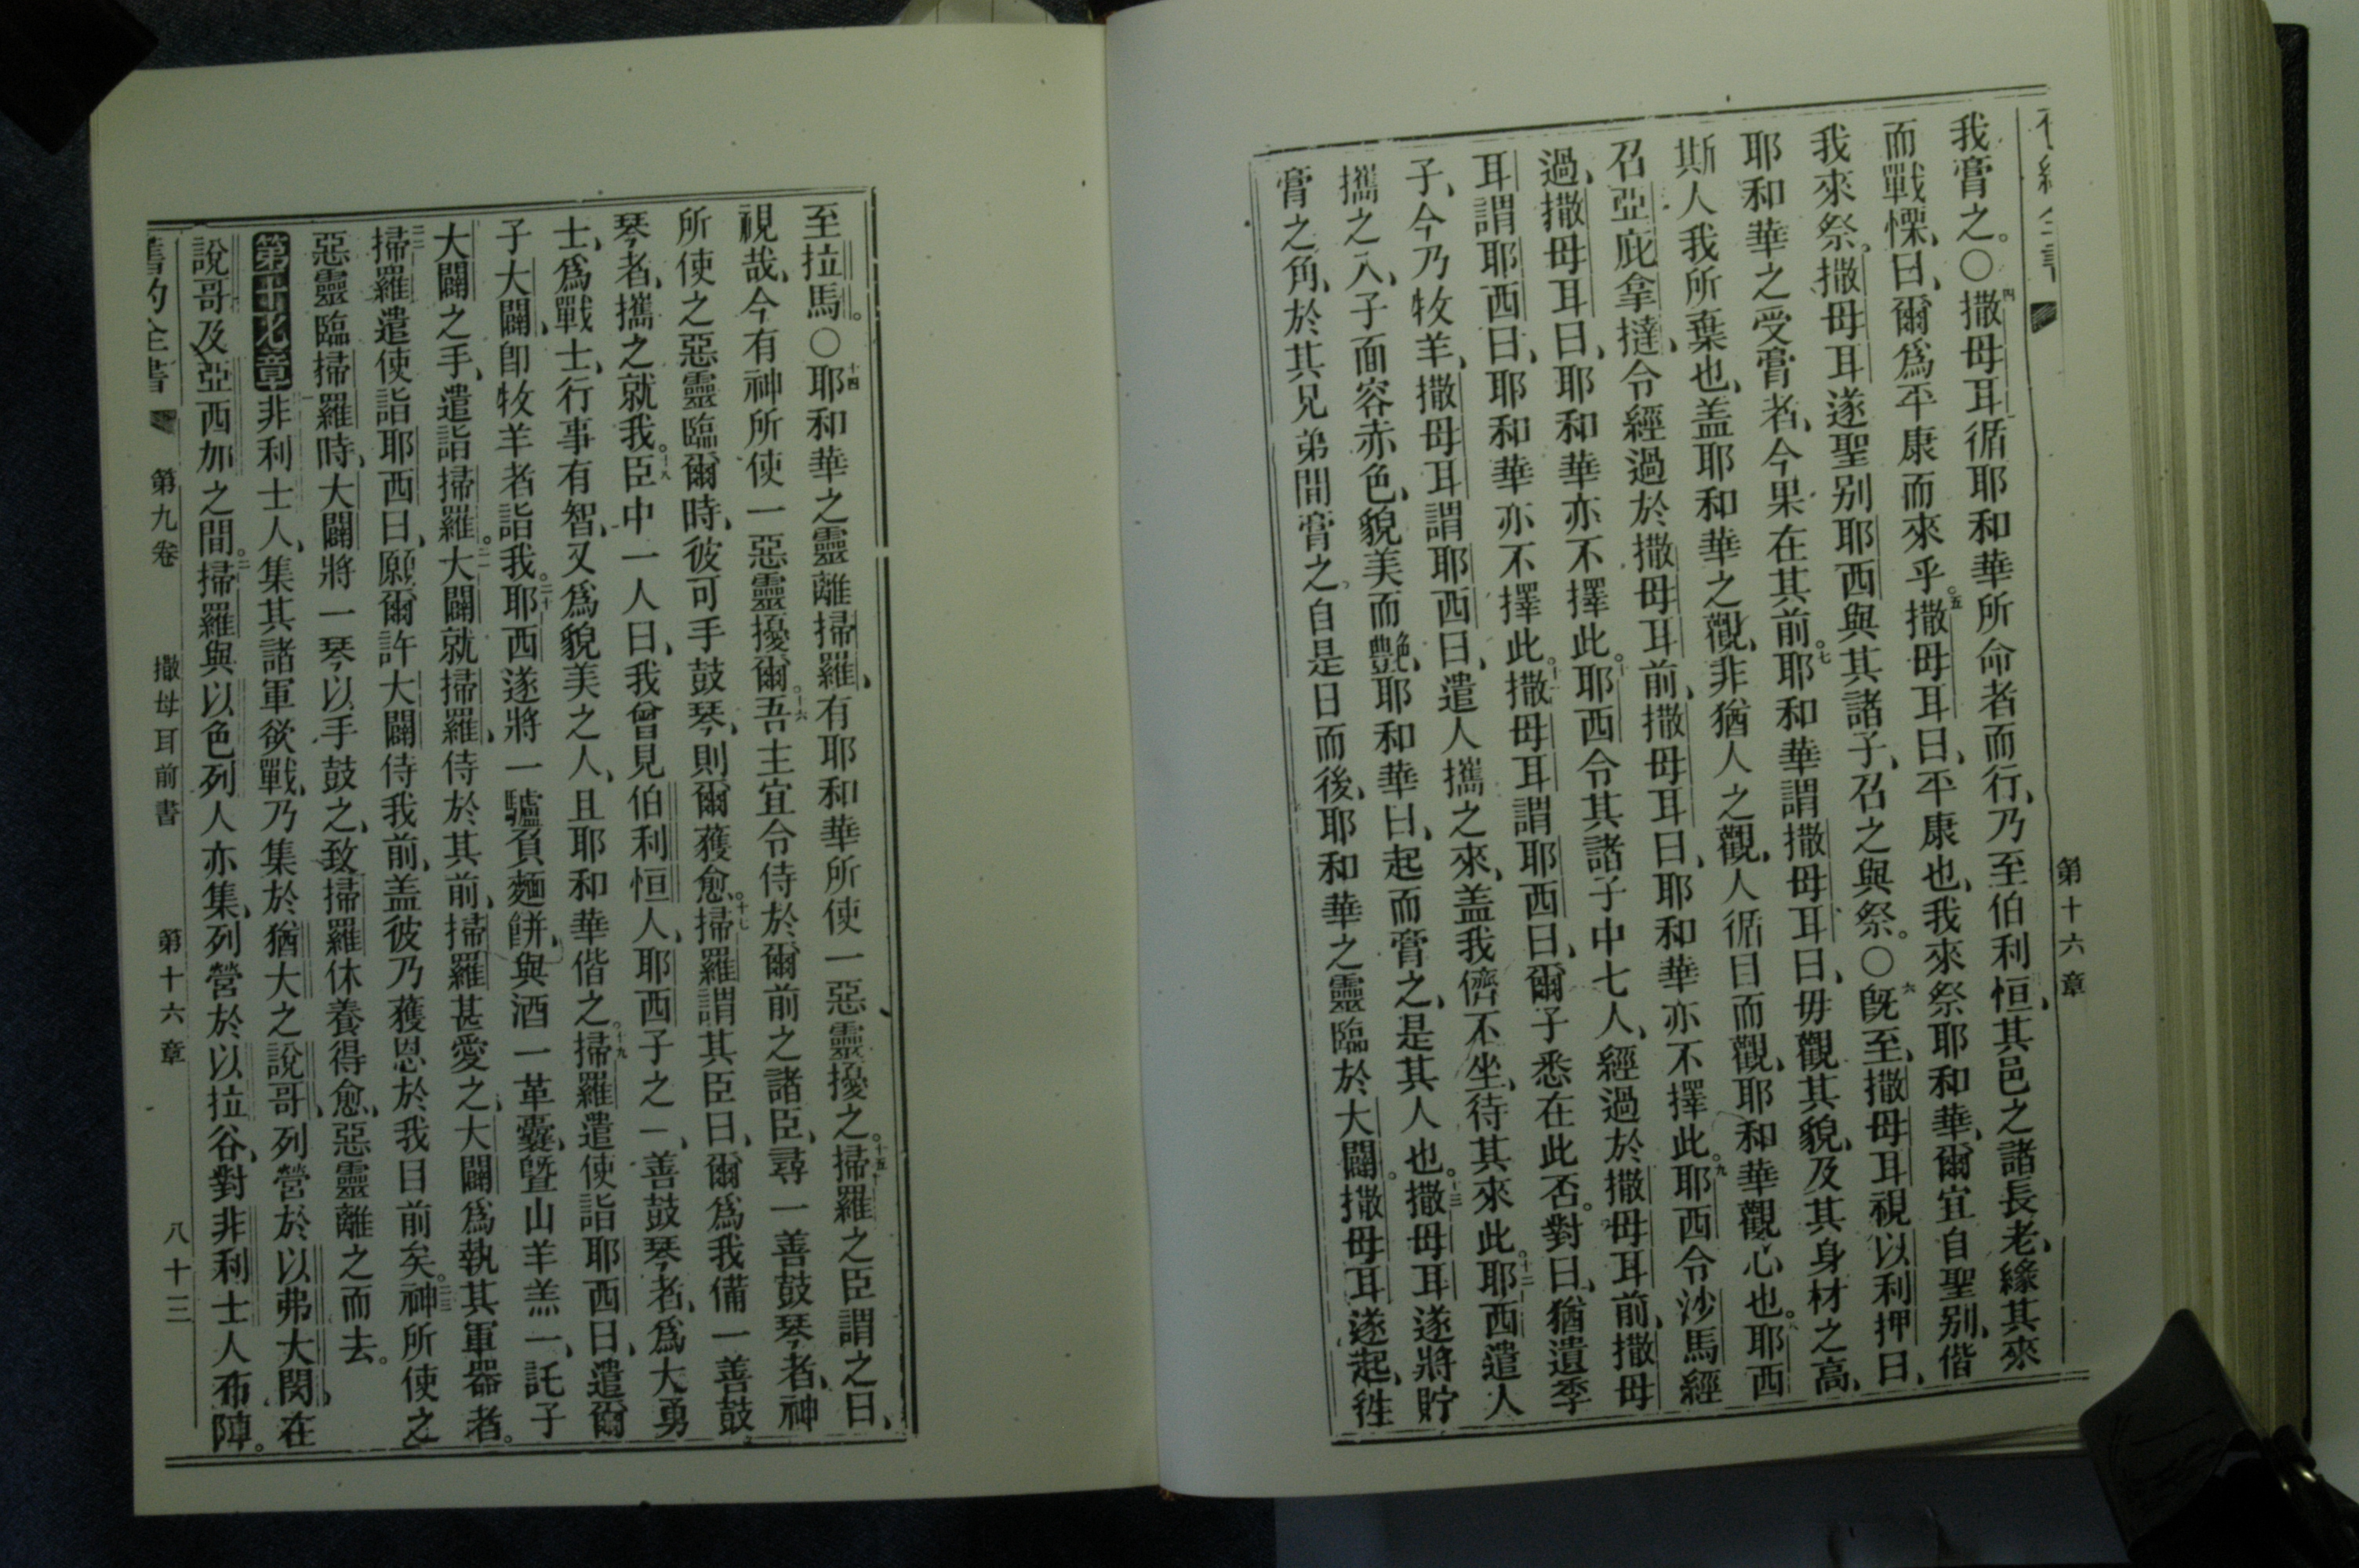 第十六章
我膏之。〇四撒母耳循耶和華所命者而行、乃至伯利恒、其邑之諸長老、緣其來
而戰慄、曰、爾爲平康而來乎。五撒母耳曰、平康也、我來祭耶和華、爾宜自聖別、偕
我來祭。撒母耳遂聖別耶西與其諸子、召之與祭。〇六旣至、撒母耳視以利押曰、
耶和華之受膏者、今果在其前。七耶和華謂撒母耳曰、毋觀其貌、及其身材之高、
斯人我所棄也、盖耶和華之觀、非猶人之觀、人循目而觀、耶和華觀心也。八耶西
召亞庇拿撻、令經過於撒母耳前、撒母耳曰、耶和華亦不擇此。九耶西令沙馬經
過、撒母耳曰、耶和華亦不擇此。十耶西令其諸子中七人、經過於撒母耳前、撒母
耳謂耶西曰、耶和華亦不擇此。十一撒母耳謂耶西曰、爾子悉在此否。對曰、猶遺季
子、今乃牧羊、撒母耳謂耶西曰、遣人攜之來、盖我儕不坐、待其來此。十二耶西遣人
攜之入、子面容赤色、貌美而艷、耶和華曰、起而膏之、是其人也。十三撒母耳遂將貯
膏之角、於其兄弟間膏之。自是日而後、耶和華之靈臨於大闢。撒母耳遂起、徃
至拉馬。〇十四耶和華之靈離掃羅、有耶和華所使一惡靈擾之。十五掃羅之臣謂之曰、
視哉、今有神所使一惡靈擾爾。十六吾主宜令侍於爾前之諸臣、尋一善鼓琴者、神
所使之惡靈臨爾時、彼可手鼓琴、則爾獲愈。十七掃羅謂其臣曰、爾爲我備一善鼓
琴者、攜之就我。十八臣中一人曰、我曾見伯利恒人、耶西子之一、善鼓琴者、爲大勇
士、爲戰士、行事有智、又爲貌美之人、且耶和華偕之。十九掃羅遣使詣耶西曰、遣爾
子大闢、卽牧羊者詣我。二十耶西遂將一驢負麵餅、與酒一革囊、曁山羊羔一、託子
大闢之手、遣詣掃羅。二一大闢就掃羅、侍於其前、掃羅甚愛之、大闢爲執其軍器者。
二二掃羅遣使詣耶西曰、願爾許大闢侍我前、盖彼乃獲恩於我目前矣。二三神所使之
惡靈臨掃羅時、大闢將一琴以手鼓之、致掃羅休養得愈、惡靈離之而去。
第十七章非利士人、集其諸軍欲戰、乃集於猶大之說哥、列營於以弗大閔、在
說哥及亞西加之間。二掃羅與以色列人亦集、列營於以拉谷、對非利士人布陣。
舊約全書 第九卷 撒母耳前書 第十六章 八十三